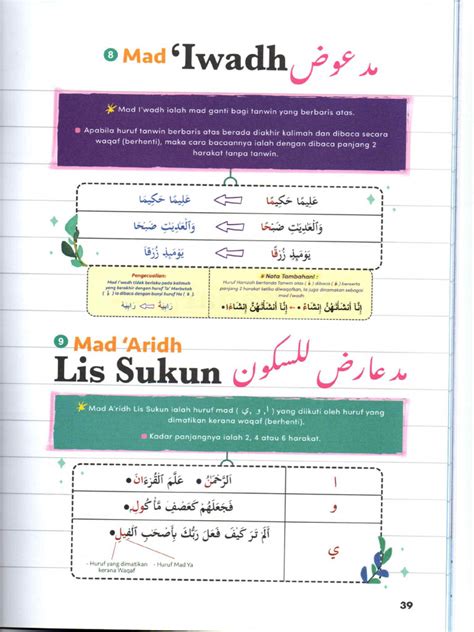 8 Mad 'Iwadh مد عوض
Mad I'wadh ialah mad ganti bagi tanwin yang berbaris atas.
Apabila huruf tanwin berbaris atas berada diakhir kalimah dan dibaca secara
waqaf (berhenti), maka cara bacaannya ialah dengan dibaca panjang 2
harakat tanpa tanwin.
عَلِيمًا حَكِيمَا عَلِيمًا حَكِيمًا
وَٱلْعَٰدِيَٰتِ ضَبْحَا وَٱلْعَٰدِيَٰتِ ضَبْحًا
يَوْمَئِذٍ زُرْقَا يَوْمَئِذٍ زُرْقًا
Pengecualian:
Mad I'wadh tidak berlaku pada kalimah
yang berakhir dengan huruf Ta' Marbutah
( ة ) Ia dibaca dengan bunyi huruf Ha ( ه )
رَابِيَةً رَابِيَهْ
Nota Tambahan!
Huruf Hamzah bertanda Tanwin atas ( ءً ) dibaca ( ءَ ) berserta
panjang 2 harakat ketika diwaqafkan, ia juga dinamakan sebagai
mad I'wadh.
إِنَّآ أَنشَأْنَٰهُنَّ إِنشَآءً ← إِنَّآ أَنشَأْنَٰهُنَّ إِنشَآءَا
9 Mad 'Aridh
Lis Sukun مد عارض للسكون
Mad A'ridh Lis Sukun ialah huruf mad ( ا, و, ي ) yang diikuti oleh huruf yang
dimatikan kerana waqaf (berhenti).
Kadar panjangnya ialah 2, 4 atau 6 harakat.
ا ٱلرَّحْمَٰنُ عَلَّمَ ٱلْقُرْءَانَ
و فَجَعَلَهُمْ كَعَصْفٍ مَّأْكُولٍ
ي أَلَمْ تَرَ كَيْفَ فَعَلَ رَبُّكَ بِأَصْحَٰبِ ٱلْفِيلِ
- Huruf yang dimatikan
kerana Waqaf
- Huruf Mad Ya
39